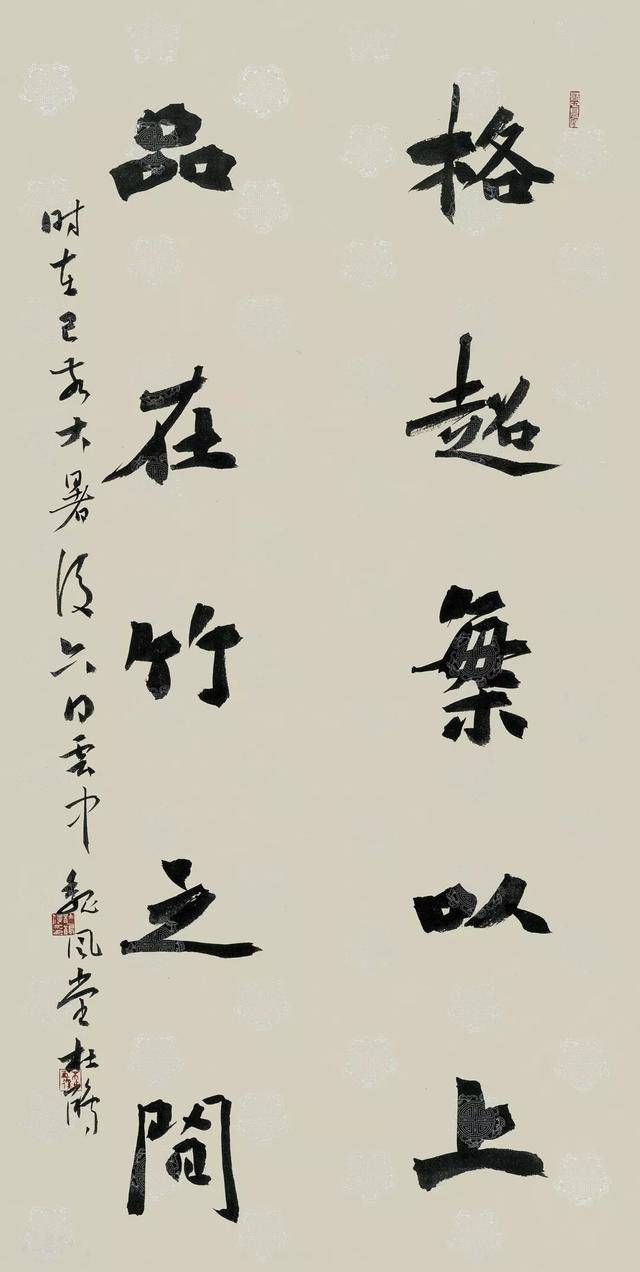 格超梅以上
品在竹之間
时在己亥大暑後六日雲中魏風堂杜